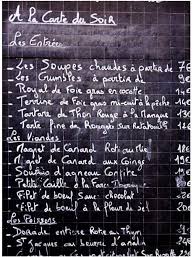 A la Carte du Soir
Les Entrées
_ Les Soupes chaudes à partir de 7€
_ Les Crumbles à partir de 9€
Royal de Foie gras en cocotte 14€
Terrine de Foie gras mi-cuit à la pêche 14€
Tartare de Thon Rouge à la mangue
Tarte fine de Rougets sur Ratatouille
Les Viandes
_ Magret de Canard Roti
_ Magret de Canard aux Coings
_ Souris d'agneau Confite
_ Petite Caille à la Farce
_ Filet de boeuf Sauce chocolat
_ Filet de boeuf à la fleur de sel
Les Poissons
_ Dorade entière Rotie au Thym
_ St Jacques au beurre d'